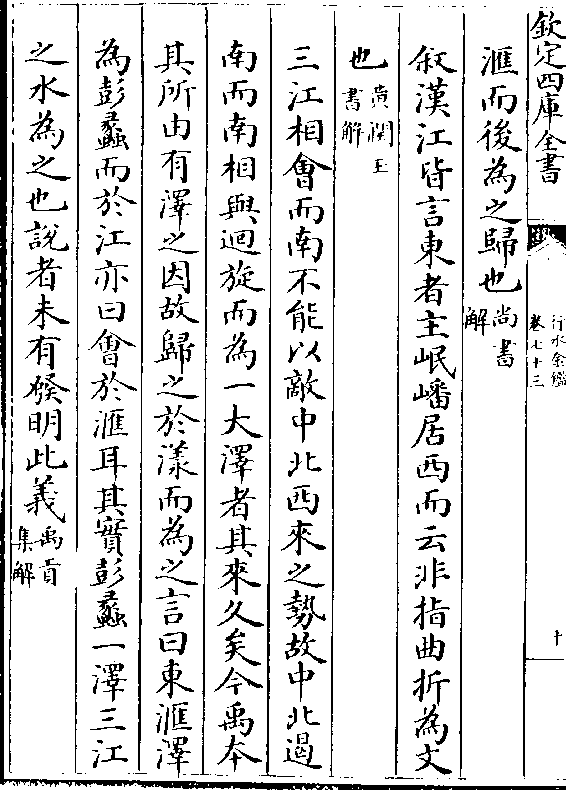 欽定四庫全書
行水金鑑
卷七十三
十
滙而後為之歸也尚書解
叙漢江皆言東者主岷嶓居西而云非指曲折為文
也黃潤玉書解
三江相會而南不能以敵中北西來之勢故中北遏
南而南相與迴旋而為一大澤者其來久矣今禹本
其所由有澤之因故歸之於漾而為之言曰東滙澤
為彭蠡而於江亦曰會於滙耳其實彭蠡一澤三江
之水為之也說者未有發明此義禹貢集解